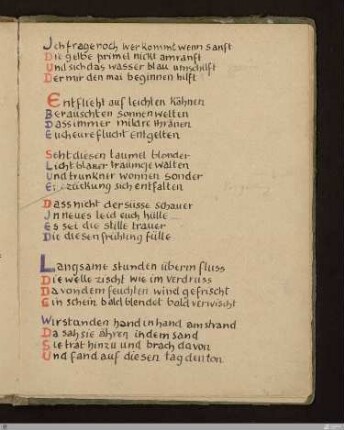 Ich frage noch wer kommt wenn sanft
Die gelbe primel nickt am ranft
Und sich das wasser blau umschilft
Der mir den mai beginnen hilft
Entflieht auf leichten kähnen
Berauschten sonnenwelten
Dass immer mildre thränen
Euch eure flucht entgelten
Seht diesen taumel blonder
Lichtblauer traumgewalten
Und trunkner wonnen sonder
Verzückung sich entfalten
Dass nicht der süsse schauer
In neues leid euch hülle
Es sei die stille trauer
Die diesen frühling fülle
Langsame stunden überm fluss
Die welle zischt wie im verdruss
Da von dem feuchten wind gefrischt
Ein schein bald blendet bald verwischt
Wir standen hand in hand am strand
Da sah sie ähren in dem sand
Sie trat hinzu und brach davon
Und fand auf diesen tag den ton.